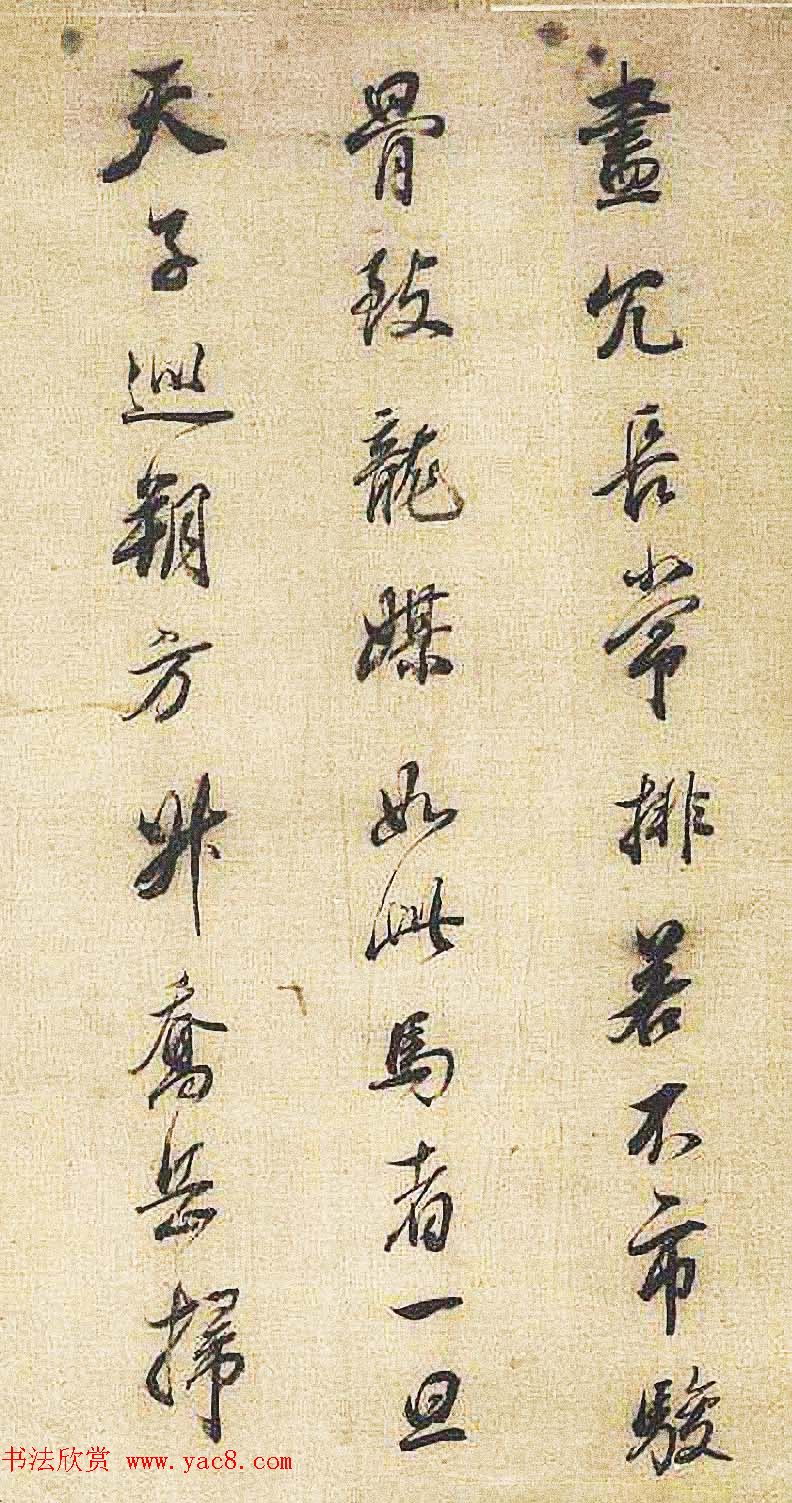 盡冗長常排若不市駿
骨致龍媒如此馬者一旦
天子巡朔方升喬岳掃
书法欣赏 www.yac8.com